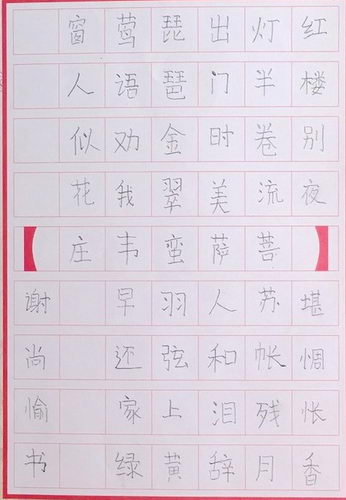 菩萨蛮韦庄
红楼别夜堪惆怅香
灯半卷流苏帐残月
出门时美人和泪辞
琵琶金翠羽弦上黄
莺语劝我早还家绿
窗人似花
谢尚愉书